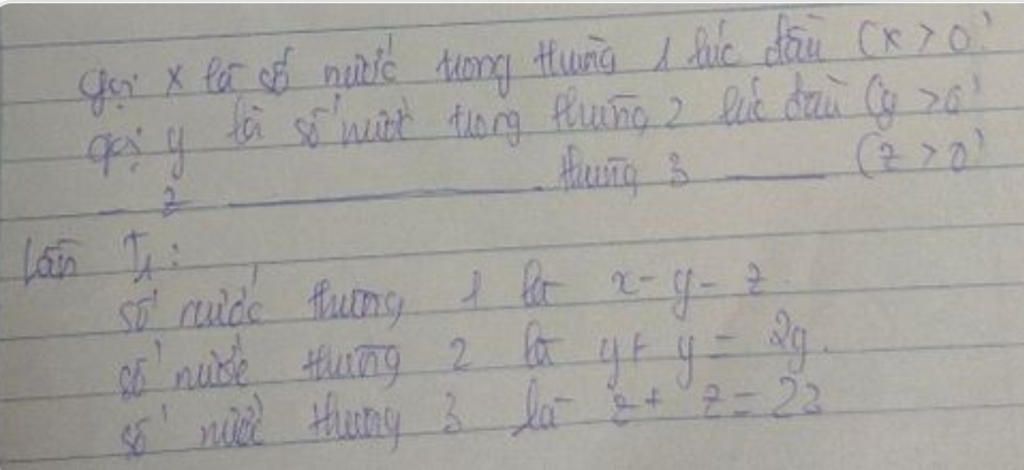 gọi x là số nước trong thùng 1 lúc đầu (x > 0)
gọi y là số nước trong thùng 2 lúc đầu (y > 0)
z ____ thùng 3 ____ (z > 0)
Lần T1:
số nước thùng 1 là x - y - z.
số nước thùng 2 là y + y = 2y.
số nước thùng 3 là z + z = 2z